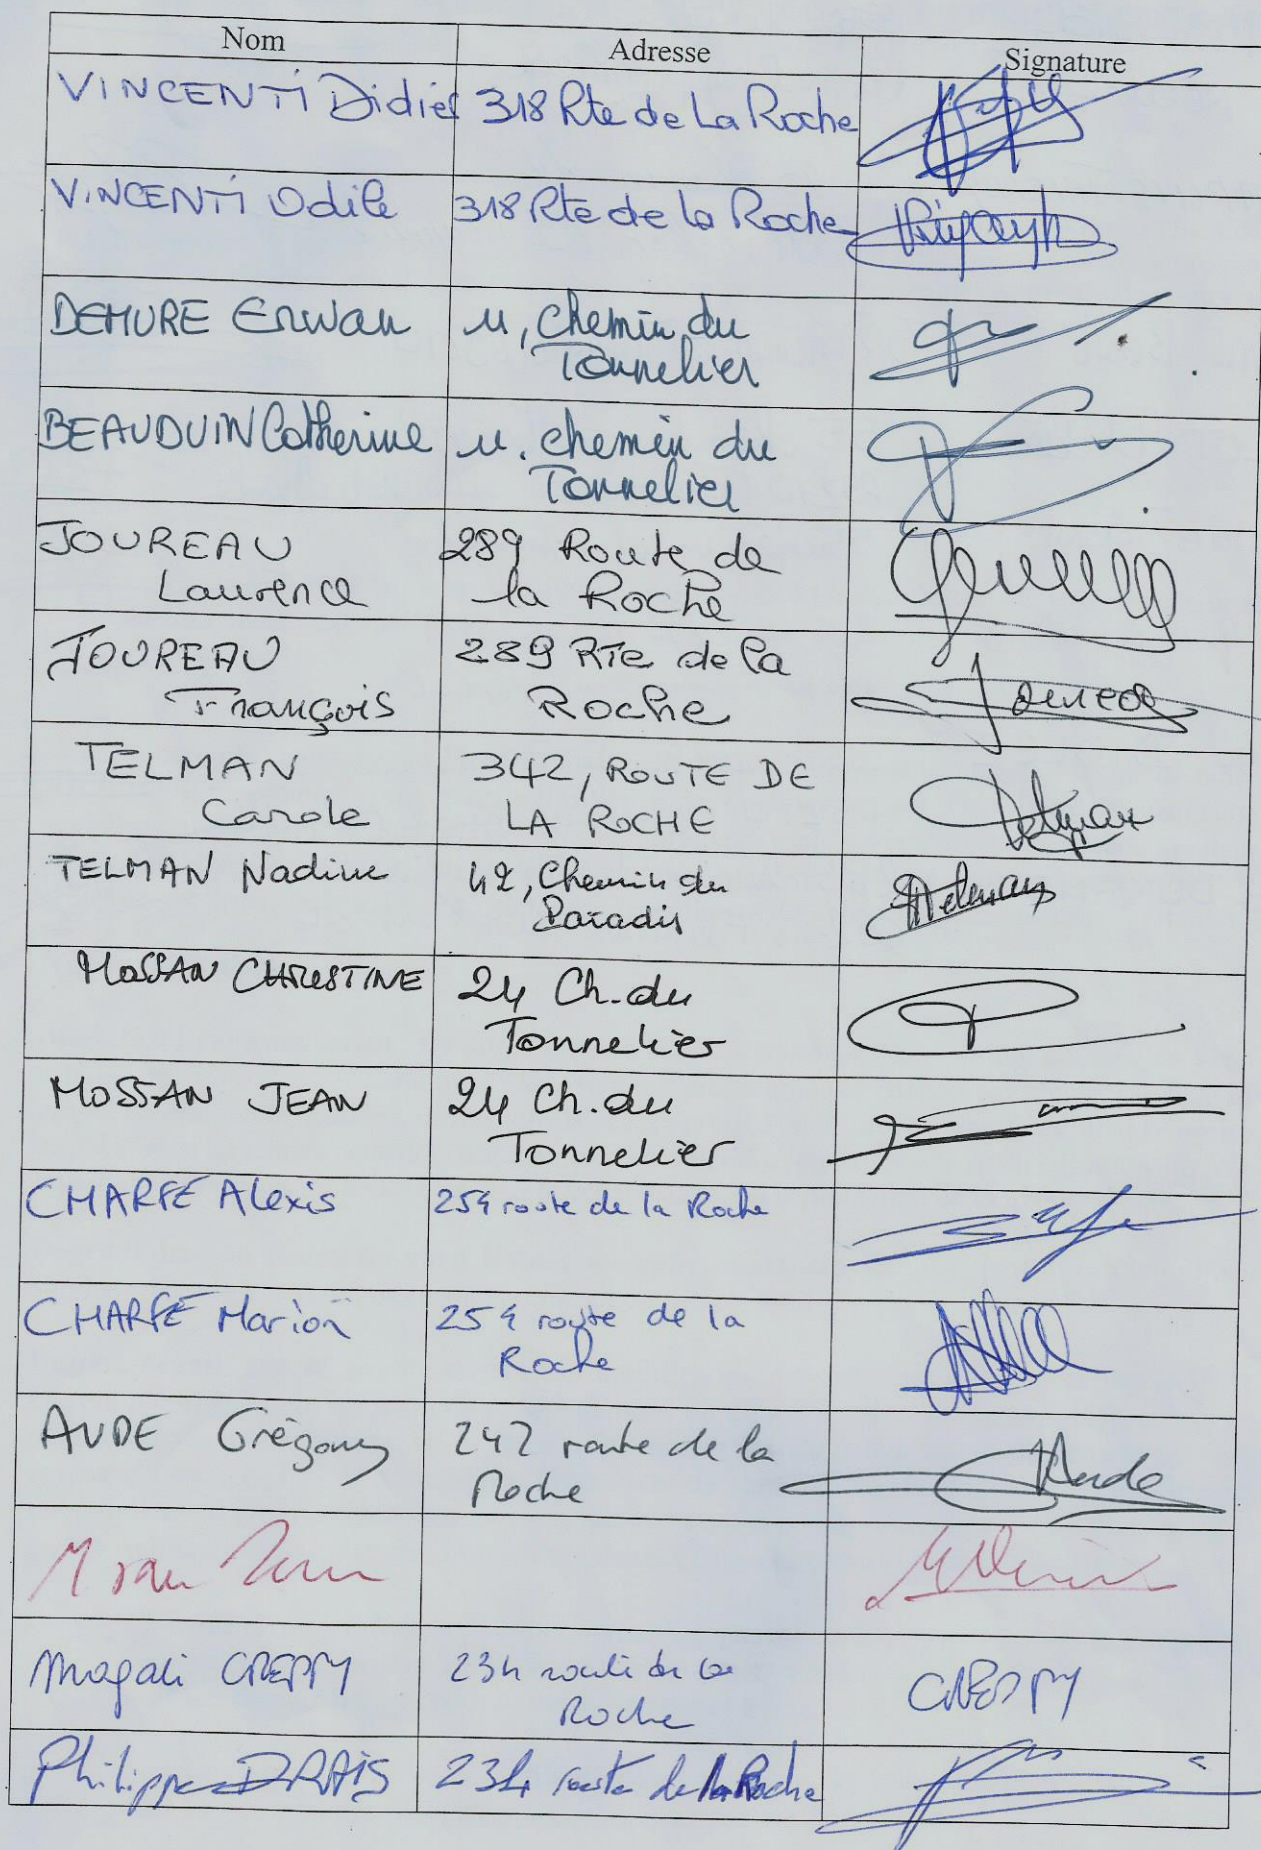 Nom Adresse Signature
VINCENTI Didier 318 Rte de La Roche
VINCENTI Odile 318 Rte de la Roche
DEMURE Erwan 11, chemin du
Tonnelier
BEAUDUIN Catherine 11. chemin du
Tonnelier
JOUREAU 289 Route de
Laurence la Roche
JOUREAU 289 RTe de la
François Roche
TELMAN 342, ROUTE DE
Carole LA ROCHE
TELMAN Nadine 42, Chemin du
Paradis
MOSSAN CHRISTINE 24 Ch. du
Tonnelier
MOSSAN JEAN 24 Ch. du
Tonnelier
CHARFE Alexis 254 route de la Roche
CHARFE Marion 254 route de la
Roche
AUDE Grégory 242 route de la Aude
Roche
Magali CREPPY 234 route de la CREPPY
Roche
Philippe DRAIS 234 route de la Roche